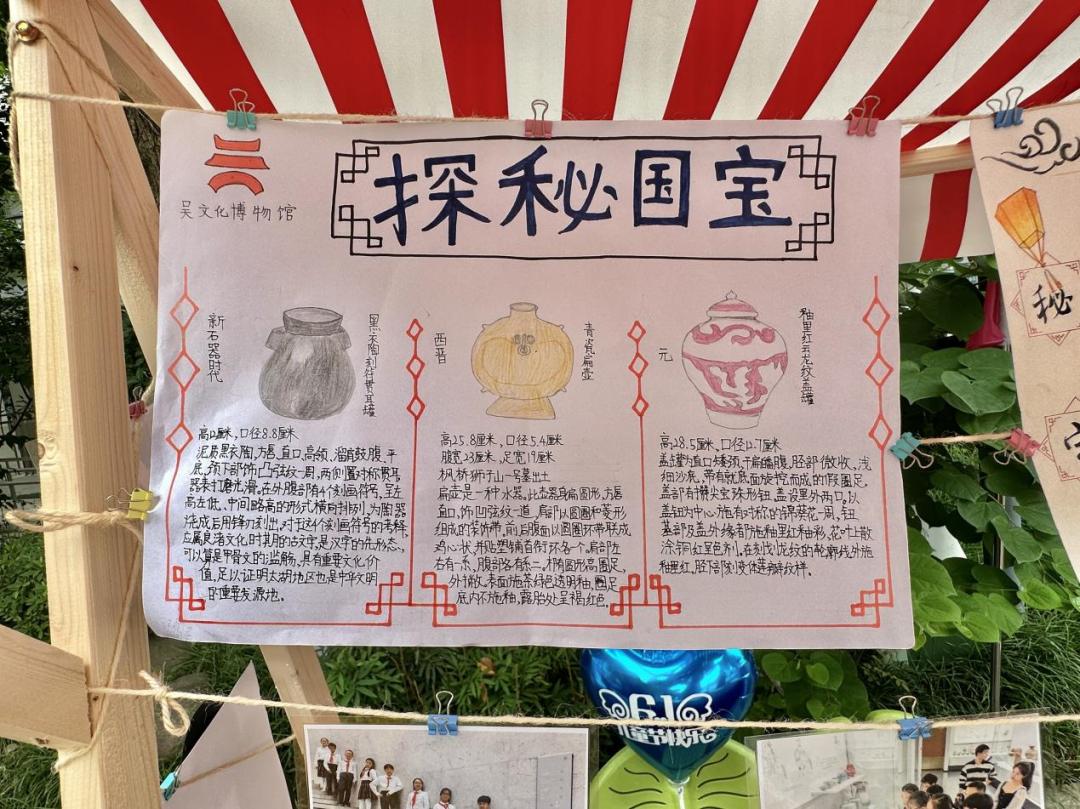 吴文化博物馆
探秘国宝
新石器时代
黑衣陶刻符贯耳罐
高12厘米,口径8.8厘米
泥质黑衣陶,方唇,直口,高领,溜肩鼓腹,平
底,颈下部饰凸弦纹一周,两侧置对称贯耳
器表打磨光滑。在外腹部有4个刻画符号,呈左
高右低、中间略高的形式横向排列,为陶器
烧成后用锋刃刻出,对于这4个刻画符号的考释,
应属良渚文化时期的古文字,是汉字的先形态,
可以算是甲骨文的滥觞,具有重要文化价
值,足以证明太湖地区也是中华文明
的重要发源地。
西晋
青瓷扁壶
高25.8厘米,口径5.4厘米
腹宽23厘米,足宽19厘米
枫桥狮子山一号墓出土
扁壶是一种水器。此壶器身扁圆形,方唇
直口,饰凹弦纹一道,肩部以圆圈和菱形
组成的装饰带,前后腹面以圆圈环带联成
鸡心状,并贴塑铺首衔环各一。肩部左
右有一系,腹部各有系二。椭圆形高圈足,
外撇,表面施茶绿色透明釉,圈足
底内不施釉,露胎处呈褐红色。
元
釉里红云龙纹盖罐
高28.5厘米,口径12.7厘米
盖罐为直口矮颈,丰肩瘦腹,胫部微收,浅
细沙底,带有就底面旋挖而成的假圈足,
盖部有攒火宝珠形钮,盖设里外两口,以
盖钮为中心,施有对称的锦葵花一周,钮
基部及盖外缘都施釉里红釉彩,花叶散
涂铜红呈色剂,在刻划龙纹的轮廓线外施
釉里红,胫下部刻变体莲瓣纹样。
秘
6.1
儿童节快乐